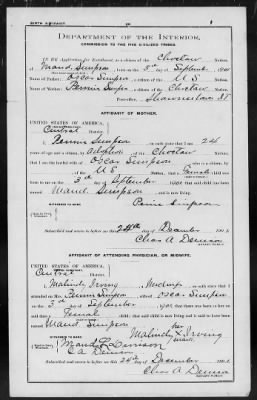 BIRTH AFFIDAVIT.
DEPARTMENT OF THE INTERIOR,
COMMISSION TO THE FIVE CIVILIZED TRIBES.
IN RE Application for Enrollment, as a citizen of the Choctaw Nation,
of Maud Simpson, born on the 3rd day of September, 190
Name of Father: Oscar Simpson a citizen of the U S
Name of Mother: Simpson a citizen of the Choctaw
Postoffice, Shawneetown I T
AFFIDAVIT OF MOTHER.
UNITED STATES OF AMERICA,
Central District.
I, Simpson, on oath state that I am 24
years of age and a citizen, by adoption, of the Choctaw
that I am the lawful wife of Oscar Simpson, who is a citizen, by
of the U S, that a Female child was
born to me on the 3rd day of September, 190 , that said child has been
named Maud Simpson, and is now living.
Simpson
Subscribed and sworn to before me this 24th day of December, 190
Chas A Denison
AFFIDAVIT OF ATTENDING PHYSICIAN, OR MIDWIFE.
UNITED STATES OF AMERICA,
Central District.
I, Malindy Irving, a Midwife, on oath state that I
attended on Mrs. Simpson, wife of Oscar Simpson
on the 3rd day of September, 190 , that there was born to her on said date a
Female child; that said child is now living and is said to have been
named Maud Simpson
her
Malindy x Irving
mark
Denison
C A Denison
Subscribed and sworn to before me this 24th day of December, 190
Chas A Denison